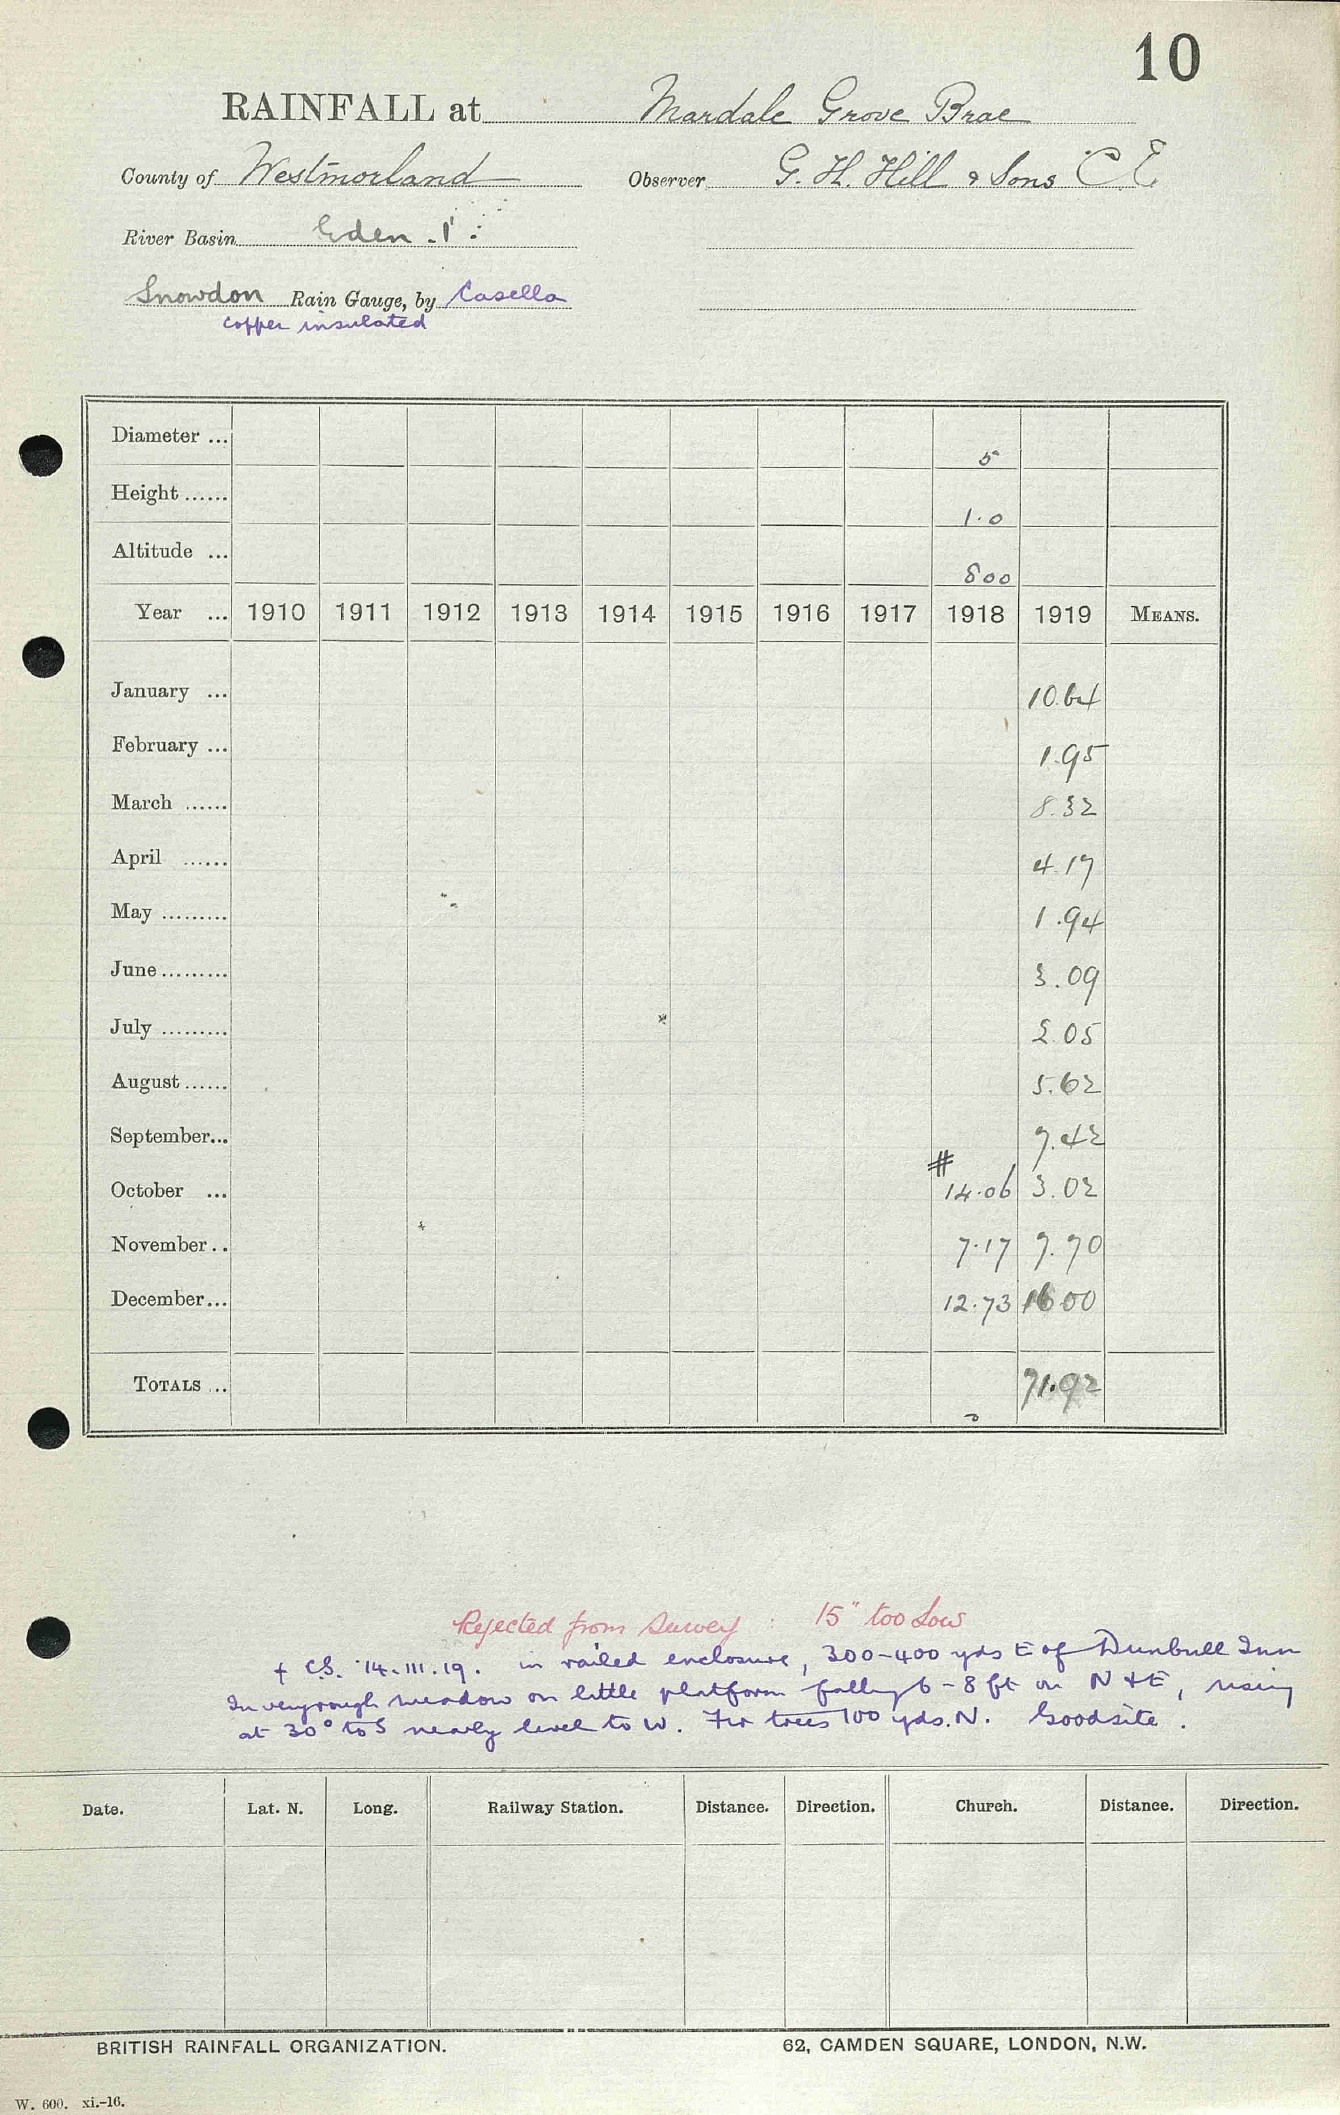 10
RAINFALL at Mardale Grove Brae
County of Westmorland Observer G. H. Hill & Sons C.E.
River Basin Eden
Snowdon Rain Gauge, by Casella
copper insulated
Diameter ... 5
Height ...... 1.0
Altitude ... 800
Year ... 1910 1911 1912 1913 1914 1915 1916 1917 1918 1919 MEANS.
January ... 10.64
February ... 1.95
March ...... 8.32
April ...... 4.17
May ......... 1.94
June ......... 3.09
July ......... 2.05
August ...... 5.62
September... 7.42
#
October ... 14.06 3.02
November .. 7.17 7.70
December... 12.73 16.00
TOTALS ... 71.92
Rejected from Survey : 15" too low
C.S. 14.III.19. in railed enclosure, 300-400 yds E of Dunbull Inn
In very rough meadow on little platform falling 6-8 ft on N & E, rising
at 30° to S nearly level to W. Fir trees 100 yds. N. Good site.
Date. Lat. N. Long. Railway Station. Distance. Direction. Church. Distance. Direction.
BRITISH RAINFALL ORGANIZATION. 62, CAMDEN SQUARE, LONDON, N.W.
W. 600. xi.-16.